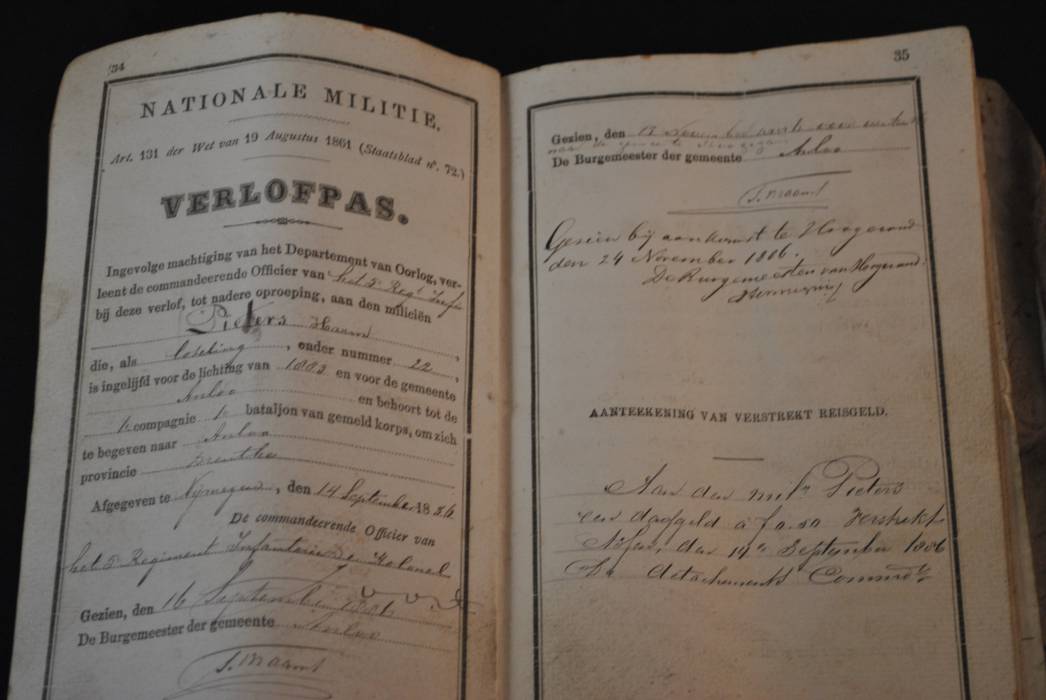 34
NATIONALE MILITIE.
Art. 131 der Wet van 19 Augustus 1861 (Staatsblad n°. 72.)
VERLOFPAS.
Ingevolge machtiging van het Departement van Oorlog, ver-
leent de commandeerende Officier van het 5e Regt Infie
bij deze verlof, tot nadere oproeping, aan den milicien
Pieters Harm,
die, als loteling, onder nummer 22,
is ingelijfd voor de lichting van 1883 en voor de gemeente
Anloo en behoort tot de
1e compagnie 1e bataljon van gemeld korps, om zich
te begeven naar Anloo
provincie Drenthe
Afgegeven te Nijmegen, den 14 September 1886
De commandeerende Officier van
het 5e Regiment Infanterie De Kolonel
Gezien, den 16 September 1886
De Burgemeester der gemeente Anloo
35
Gezien, den November
naar de gemeente
De Burgemeester der gemeente Anloo
Gezien bij aankomst te Hoogezand
den 24 November 1886.
De Burgemeester van Hoogezand
AANTEEKENING VAN VERSTREKT REISGELD.
Aan den miln Pieters
een daggeld à f 0.50 verstrekt
den 14e September 1886
De detachements Commdt